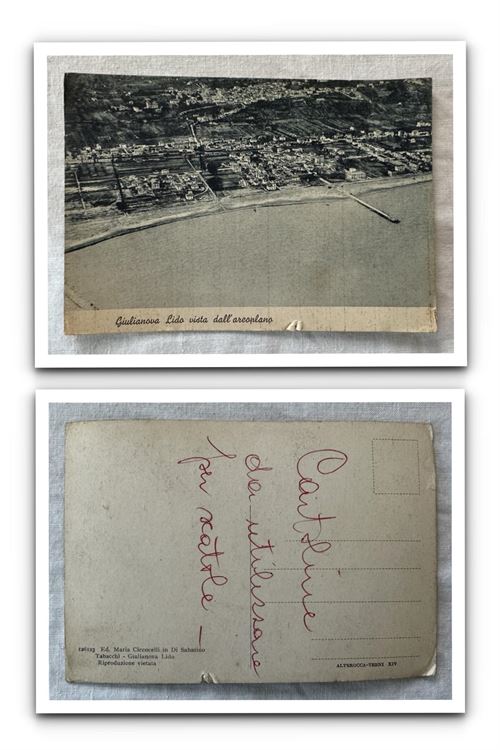 Giulianova Lido vista dall'aeroplano
Cartoline
da utilizzare
per scatole -
126123 Ed. Maria Ciccocelli in Di Sabatino
Tabacchi - Giulianova Lido
Riproduzione vietata
ALTEROCCA-TERNI XIV